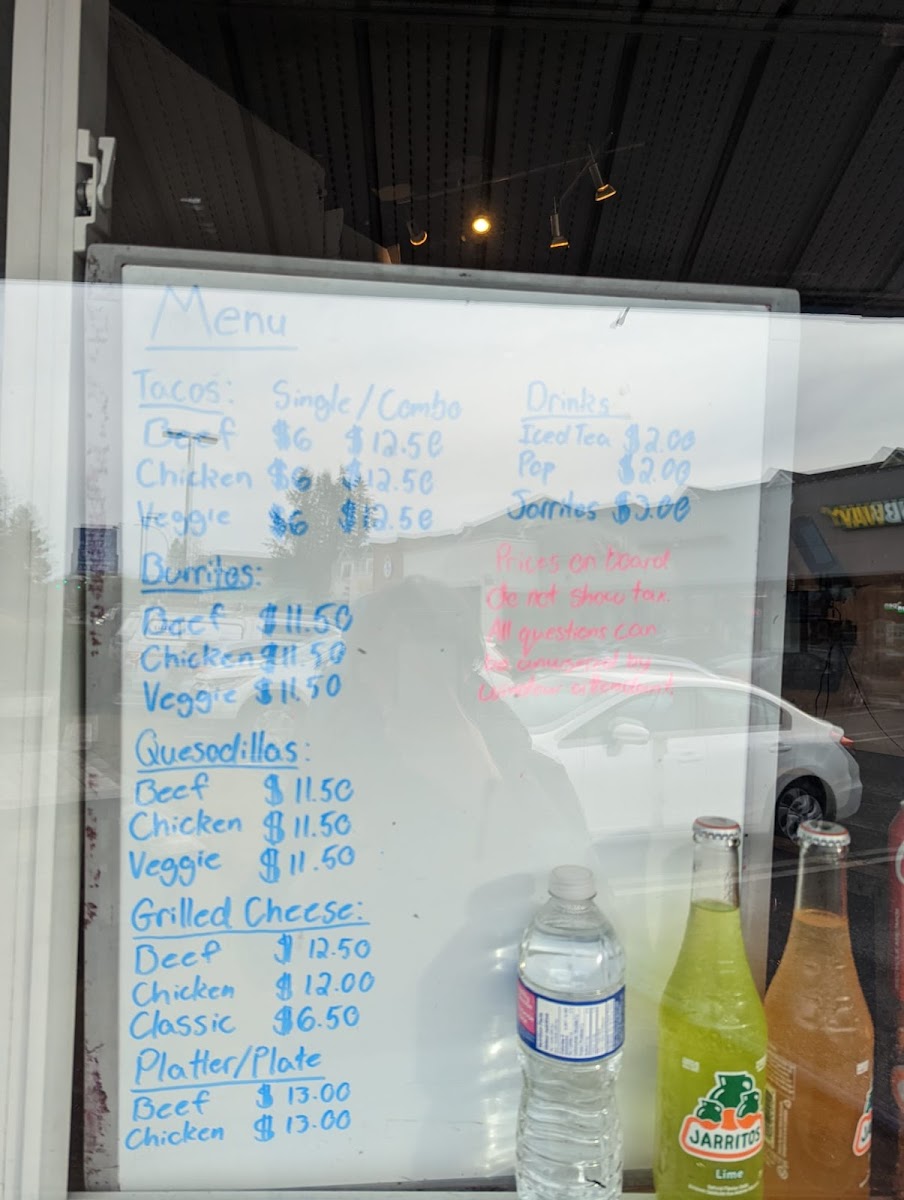 Menu
Tacos: Single/Combo
Beef $6 $12.50
Chicken $6 $12.50
Veggie $6 $12.50
Burritos:
Beef $11.50
Chicken $11.50
Veggie $11.50
Quesadillas:
Beef $11.50
Chicken $11.50
Veggie $11.50
Grilled Cheese:
Beef $12.50
Chicken $12.00
Classic $6.50
Platter/Plate
Beef $13.00
Chicken $13.00
Drinks
Iced Tea $2.00
Pop $2.00
Jarritos $3.00
Prices on board
do not show tax.
All questions can
be answered by
window attendant
JARRITOS
Lime